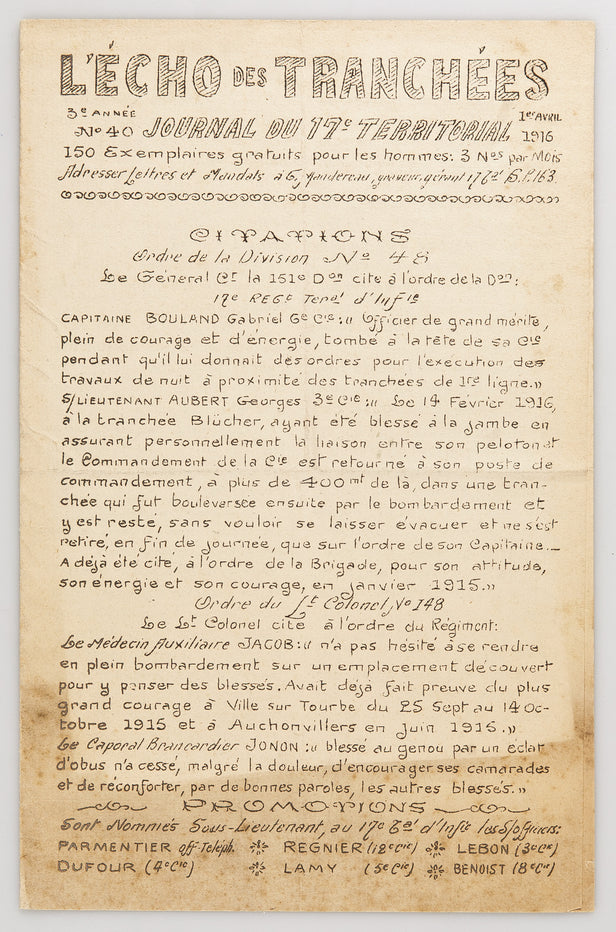 L'ÉCHO DES TRANCHÉES
3e ANNÉE
No 40 JOURNAL DU 17e TERRITORIAL 1er AVRIL 1916
150 Exemplaires gratuits pour les hommes: 3 Nos par Mois
Adresser Lettres et Mandats à G. graveur, gérant 17e
CITATIONS
Ordre de la Division No 48
Le Général Ct la 151e Don cite à l'ordre de la Don:
17e REGt Teral d'Infie
CAPITAINE BOULAND Gabriel Ge Cie: « Officier de grand mérite,
plein de courage et d'énergie, tombé à la tête de sa Cie
pendant qu'il lui donnait des ordres pour l'exécution des
travaux de nuit à proximité des tranchées de 1re ligne.»
S/LIEUTENANT AUBERT Georges 3e Cie: « Le 14 Février 1916,
à la tranchée Blücher, ayant été blessé à la jambe en
assurant personnellement la liaison entre son peloton et
le Commandement de la Cie est retourné à son poste de
commandement, à plus de 400mt de là, dans une tran-
chée qui fut bouleversée ensuite par le bombardement et
y est resté, sans vouloir se laisser évacuer et ne s'est
retiré, en fin de journée, que sur l'ordre de son Capitaine._
A déjà été cité, à l'ordre de la Brigade, pour son attitude,
son énergie et son courage, en janvier 1915.»
Ordre du Lt Colonel, No 148
Le Lt Colonel cite à l'ordre du Régiment:
Le Médecin Auxiliaire JACOB: « n'a pas hésité à se rendre
en plein bombardement sur un emplacement découvert
pour y panser des blessés. Avait déjà fait preuve du plus
grand courage à Ville sur Tourbe du 25 Sept au 14 Oc-
tobre 1915 et à Auchonvillers en Juin 1915.»
Le Caporal Brancardier JONON: « blessé au genou par un éclat
d'obus n'a cessé, malgré la douleur, d'encourager ses camarades
et de réconforter, par de bonnes paroles, les autres blessés.»
PROMOTIONS
Sont Nommés Sous-Lieutenant, au 17e Tal d'Infie les S/officiers:
PARMENTIER off. Téléph. REGNIER (12e Cie) LEBON (3e Cie)
DUFOUR (4e Cie) LAMY (5e Cie) BENOIST (8e Cie)